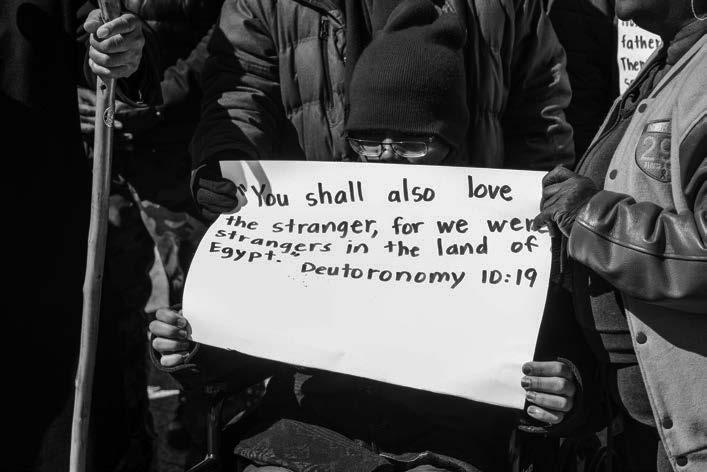 "You shall also love
the stranger, for we were
strangers in the land of
Egypt." Deutoronomy 10:19
father
29